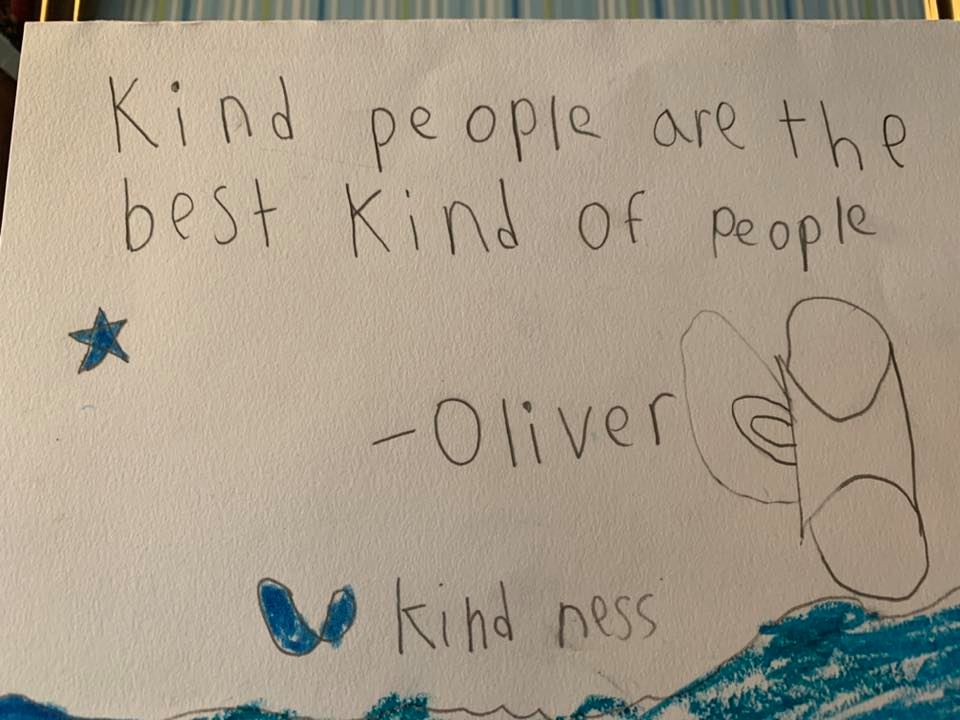 Kind people are the
best Kind of people
-Oliver
kind ness